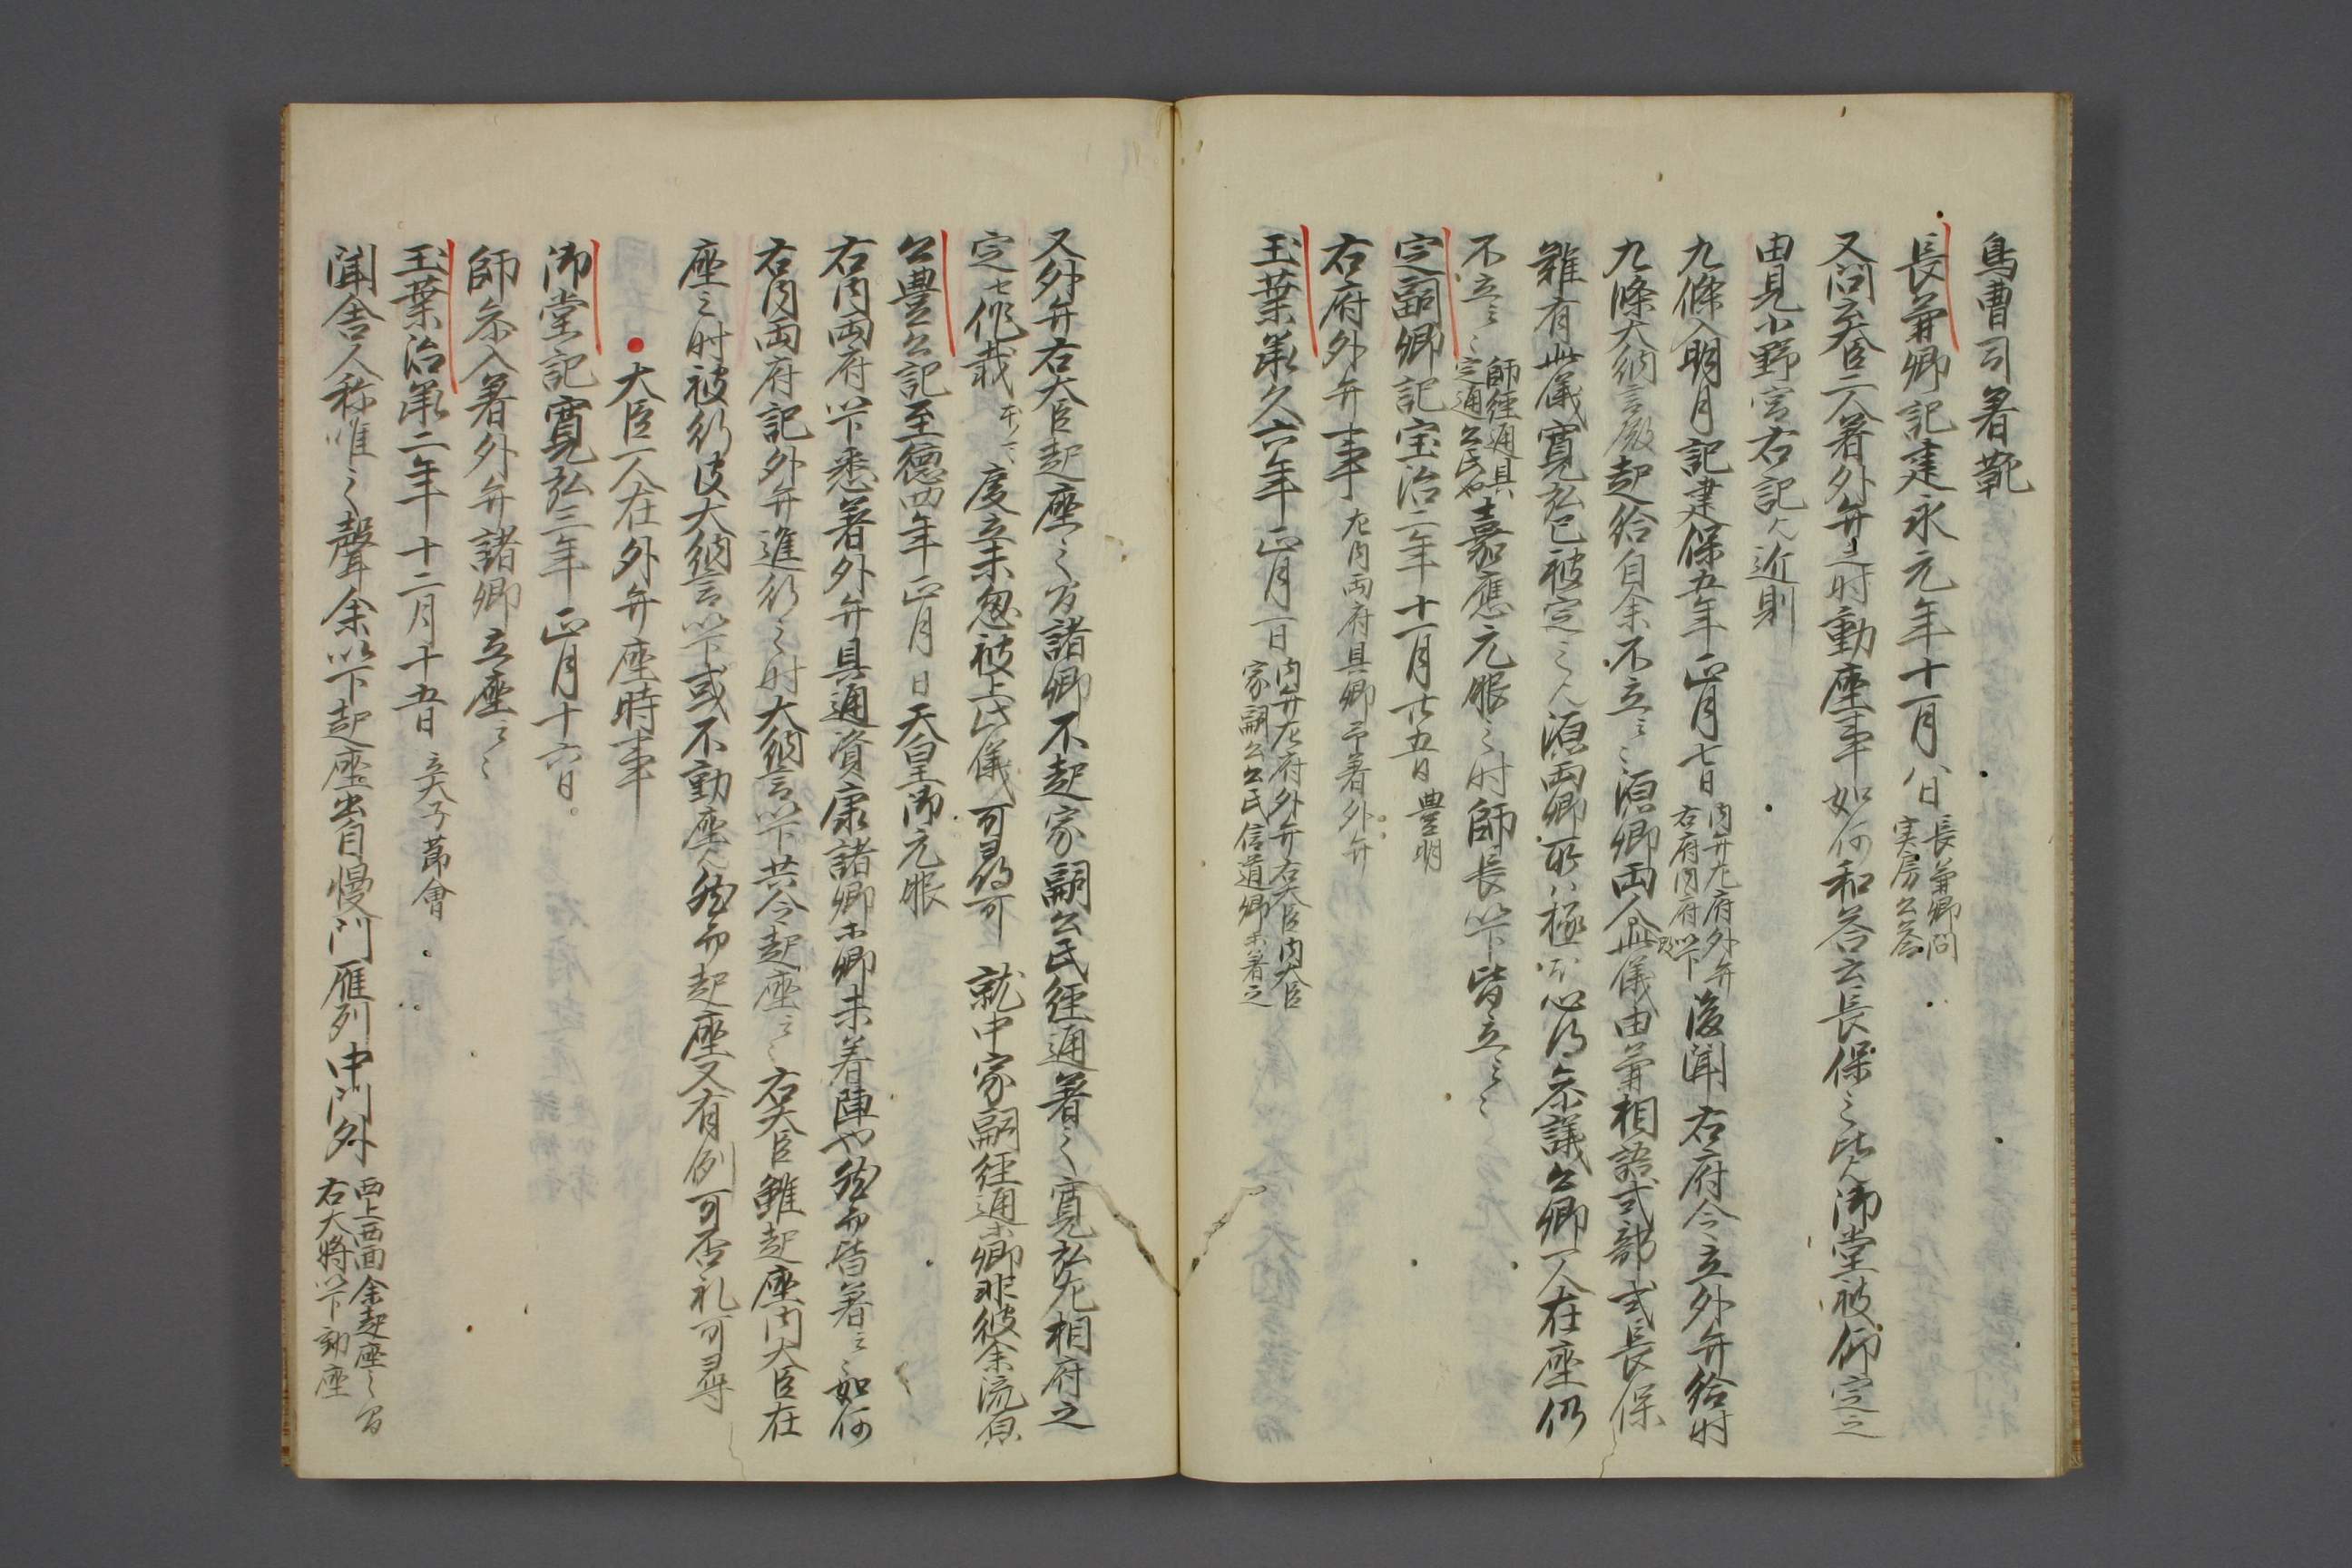 鳥曹司著靴
長兼卿記建永元年十一月八日 長兼卿問 実房公答
又問云大臣二人著外弁之時動座事如何和答云長保之比人御堂被仰定之
由見小野宮右記又近則
九條入明月記建保五年正月七日 内弁左府外弁 右府内府以下 後聞右府令立外弁給時
九條大納言殿起給自余不立云々源卿両人此儀由兼相語式部式長保
雖有此儀寛弘已被定之人源両卿所以極不心得参議公卿一人在座仍
不立云々 師経通具 定通公氏也 嘉應元服之時師長以下皆立云々
定嗣卿記宝治二年十一月廿五日 豊明
右府外弁事 左内両府具卿不著外弁
玉葉承久六年正月一日 内弁左府外弁右大臣内大臣 家嗣公公氏信道卿未著之
又外弁右大臣起座之間諸卿不起家嗣公氏経通著之寛弘左相府之
定也作哉 度立未忽被止此儀可尋得可 就中家嗣経通未卿非彼余流
公豊公記至徳四年正月 日天皇御元服
右内両府以下悉著外弁具通資康諸卿未卿未着陣也然而皆著之如何
右内両府記外弁進行之時大納言以下共令起座云々右大臣雖起座内大臣在
座之時被行彼大納言以下或不動座又然而起座又有例可否礼可尋
大臣一人在外弁座時事
御堂記寛弘三年正月十六日
師参入著外弁諸卿立座云々
玉葉治承二年十二月十五日 立太子節會
聞舎人称唯之聲余以下起座出自慢門雁列中門外 西上西面余起座之間 右大将以下動座